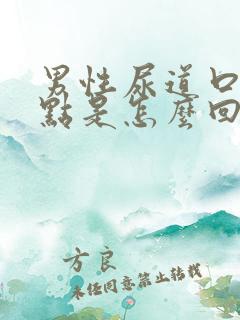 男性尿道口
點是怎麼回
方良
未經同意禁止轉載